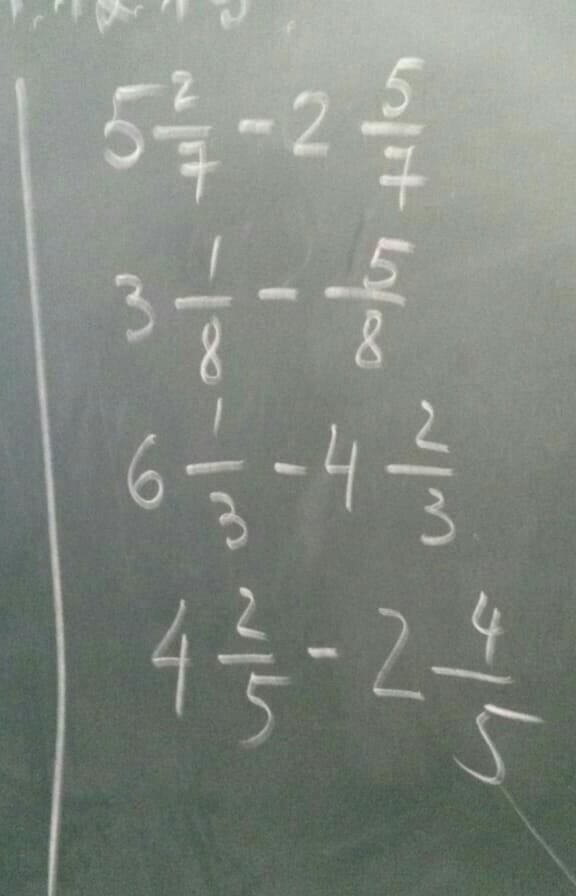 5 2/7 - 2 5/7
3 1/8 - 5/8
6 1/3 - 4 2/3
4 2/5 - 2 4/5